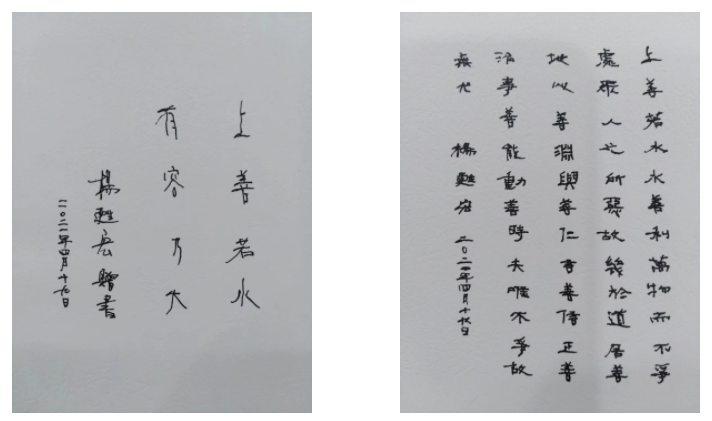 上善若水
有容乃大
楊甦宏贈書
二〇二一年四月十九日
上善若水水善利萬物而不爭
處眾人之所惡故幾於道居善
地心善淵與善仁言善信正善
治事善能動善時夫唯不爭故
無尤 楊甦宏 二〇二一年四月十九日